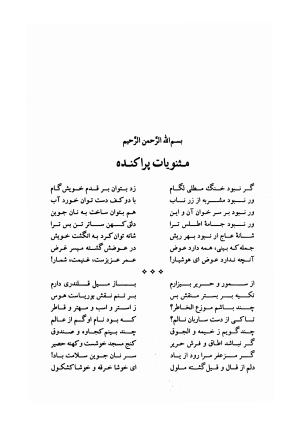 بسم الله الرّحمن الرّحیم
مثنویات پراکنده
گر نبود خنگ مطلی لگام زد بتوان بر قدم خویش گام
ور نبود مشربه از زر ناب با دو کف دست توان خورد آب
ور نبود بر سر خوان آن و این هم بتوان ساخت به نان جوین
ور نبود جامهٔ اطلس ترا دلق کهن ساتر تن بس ترا
شانهٔ عاج ار نبود بهر ریش شانه توان کرد به انگشت خویش
جمله که بینی، همه دارد عوض در عوضش گشته میسر غرض
آنچه ندارد عوض ای هوشیار! عمر عزیزست، غنیمت، شمار!
* * *
از سمور و حریر بیزارم باز میل قلندری دارم
تکیه بر بستر منقش بس بر تنم نقش بوریاست هوس
چند باشم موزع الخاطر؟ ز استر و اسب و مهتر و قاطر
تا کی از دست ساربان نالم؟ که بود نام او گم از عالم
چند گویم ز خیمه و الجوق چند بینم کجاوه و صندوق
گر نباشد اطاق و فرش حریر کنج مسجد خوشست و کهنه حصیر
گر مزعفر مرا رود از یاد سر نان جوین سلامت باد!
دلم از قال و قیل گشته ملول ای خوشا خرقه و خوشا کشکول